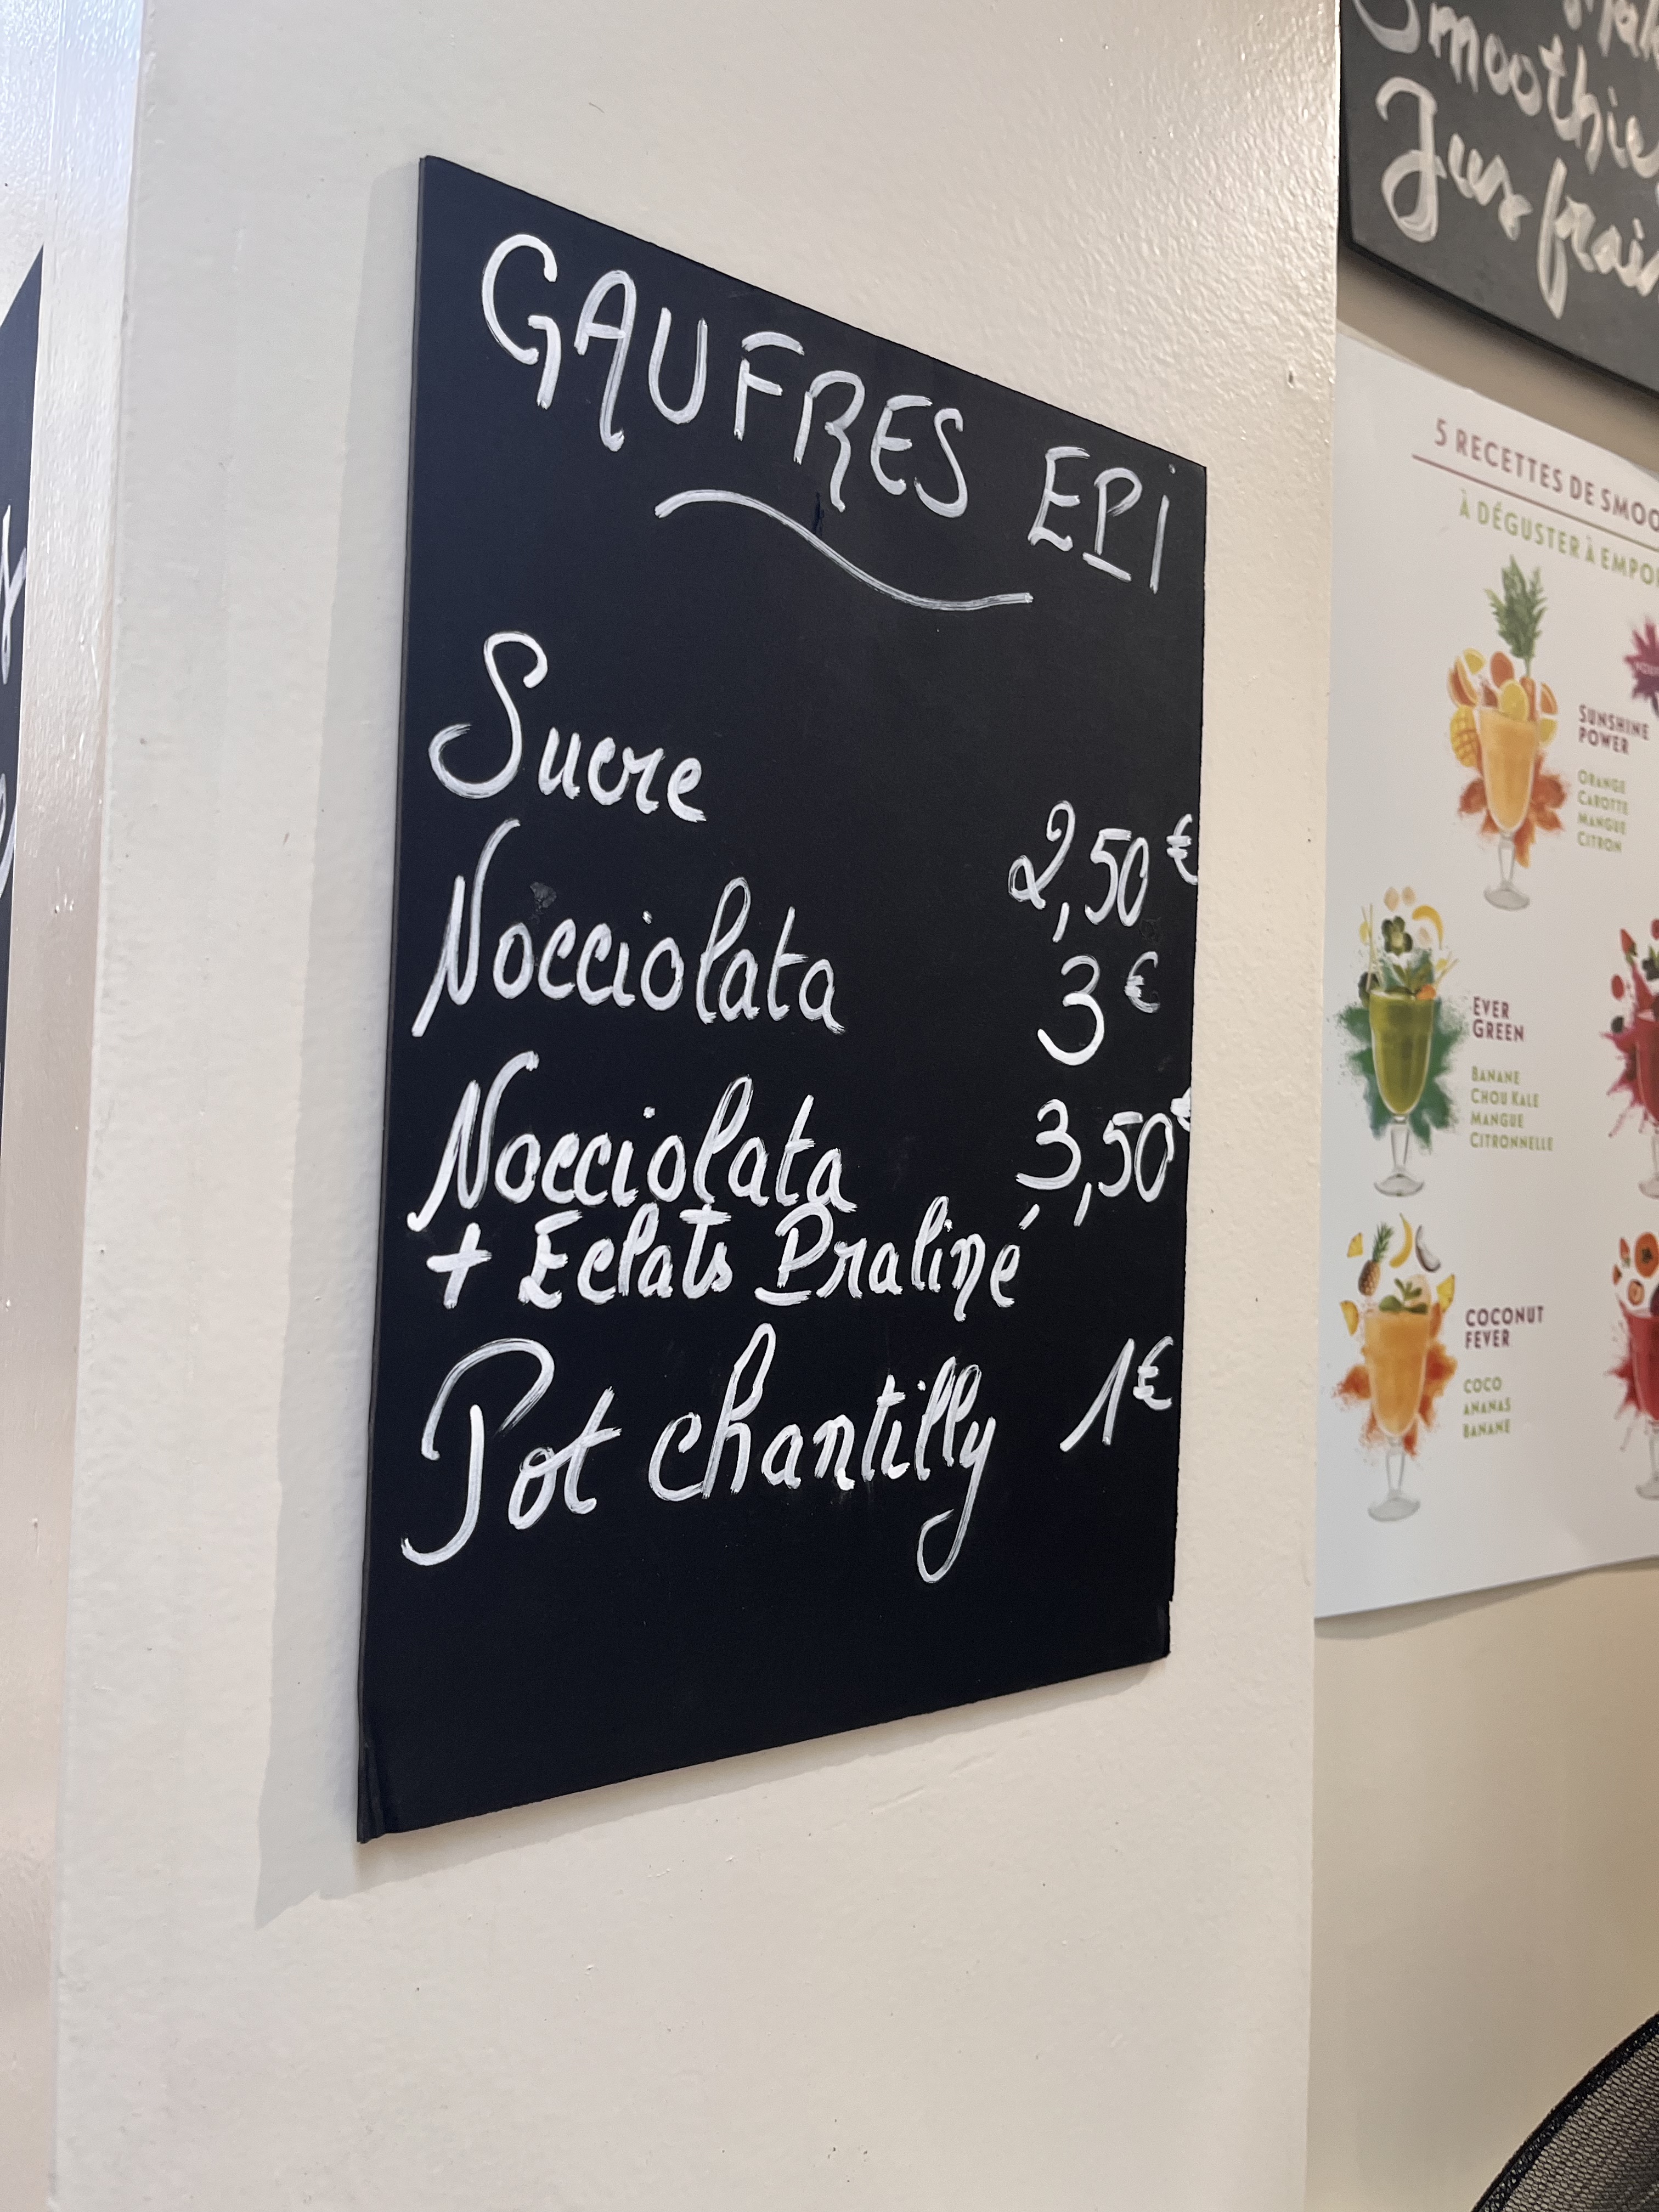 GAUFRES EPi
Sucre 2,50€
Nocciolata 3€
Nocciolata 3,50€
+ Eclats Praliné
Pot chantilly 1€
Smoothie
Jus frais
5 RECETTES DE
À DÉGUSTER À
SUNSHINE
POWER
ORANGE
CAROTTE
MANGUE
CITRON
EVER
GREEN
BANANE
CHOU KALE
MANGUE
CITRONNELLE
COCONUT
FEVER
COCO
ANANAS
BANANE